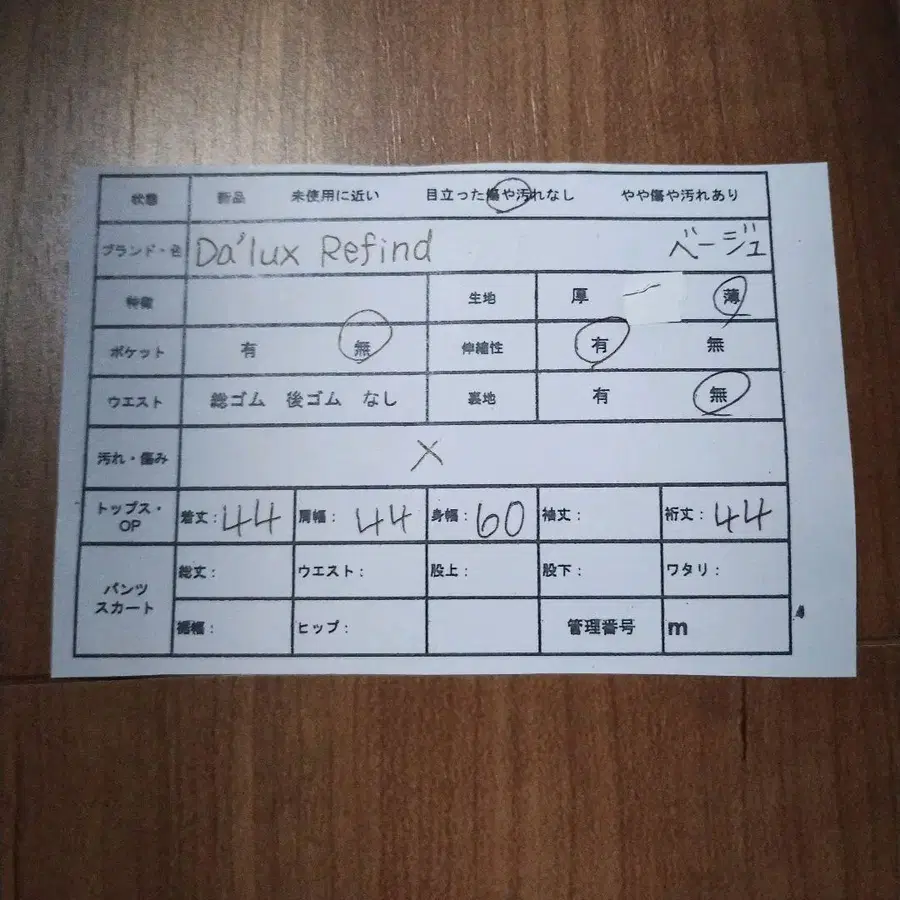 状態 新品 未使用に近い 目立った傷や汚れなし やや傷や汚れあり
ブランド・色 Da'lux Refind ベージュ
特徴 生地 厚 薄
ポケット 有 無 伸縮性 有 無
ウエスト 総ゴム 後ゴム なし 裏地 有 無
汚れ・傷み ×
トップス・OP 着丈: 44 肩幅: 44 身幅: 60 袖丈: 裄丈: 44
パンツ スカート 総丈: ウエスト: 股上: 股下: ワタリ:
裾幅: ヒップ: 管理番号 m